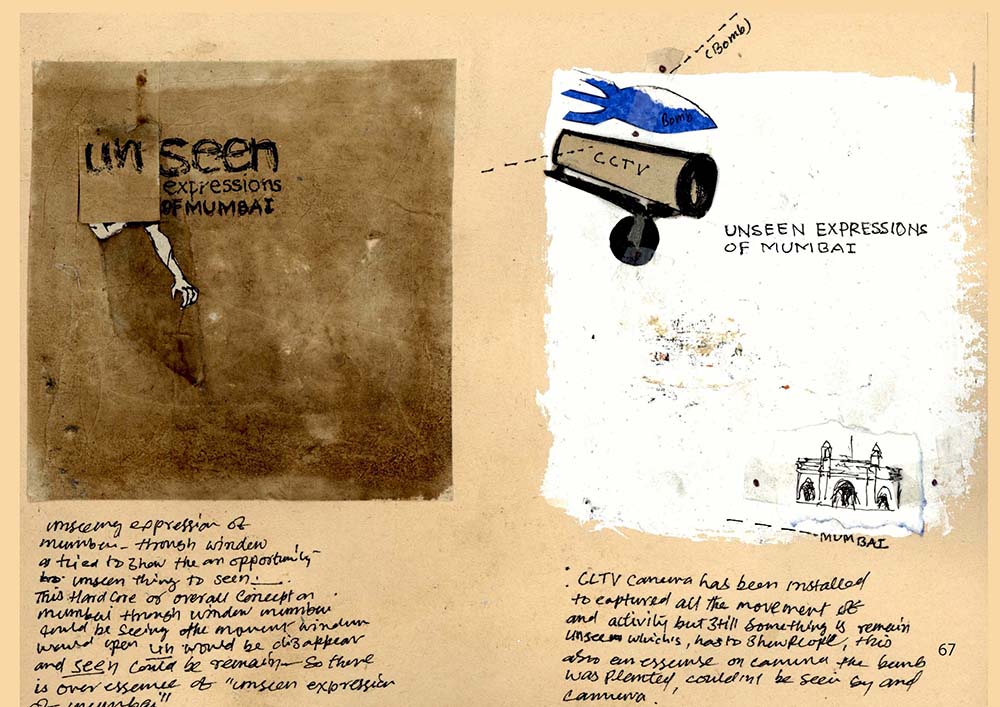 un seen
expressions
OF MUMBAI
unseeing expression of
mumbai - through window
a tried to show the an opportunity
unseen thing to seen.
This Hard Core or overall concept on
mumbai through window mumbai
could be seeing othe moment window
would open un would be disappear
and seen could be remain - so there
is over essense of "unseen expression
of mumbai"
(Bomb)
Bomb
CCTV
UNSEEN EXPRESSIONS
OF MUMBAI
MUMBAI
CCTV camera has been installed
to captured all the movement of
and activity but still something is remain
unseen which is, has to show people, this
also an essense on camera the bomb
was planted, couldn't be seen by and
camera.
67